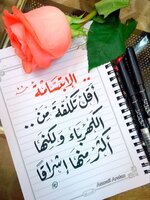 الإبتسامة ..
أقل تكلفة من ..
الكهرباء ولكنها
أكثر منها إشراقا